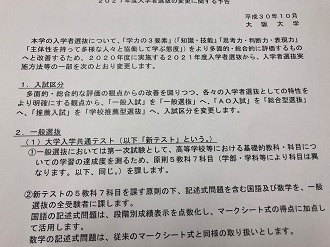 2021年度入学者選抜の変更に関する予告
平成30年10月
大阪大学
本学の入学者選抜について、「学力の3要素」(「知識・技能」「思考力・判断力・表現力」
「主体性を持って多様な人々と協働して学ぶ態度」)をより多面的・総合的に評価するもの
へと改善するため、2020年度に実施する2021年度入学者選抜から、入学者選抜実
施方法等の一部を次のとおり変更します。
1.入試区分
多面的・総合的な評価の観点からの改善を図りつつ、各々の入学者選抜としての特性を
より明確にする観点から、「一般入試」を「一般選抜」へ、「AO入試」を「総合型選抜」
へ、「推薦入試」を「学校推薦型選抜」へ、入試区分を変更します。
2.一般選抜
(1)大学入学共通テスト(以下「新テスト」という。)
①一般選抜においては第一次試験として、高等学校等における基礎的教科・科目につ
いての学習の達成度を測るため、原則5教科7科目(学部・学科等により科目は異
なります。以下、同じ。)を課します。
②新テストの5教科7科目を課す原則の下、記述式問題を含む国語及び数学を、一般
選抜の全受験者に課します。
国語の記述式問題は、段階別成績表示を点数化し、マークシート式の得点に加点し
て活用します。
数学の記述式問題は、従来のマークシート式と同様の取り扱いとします。